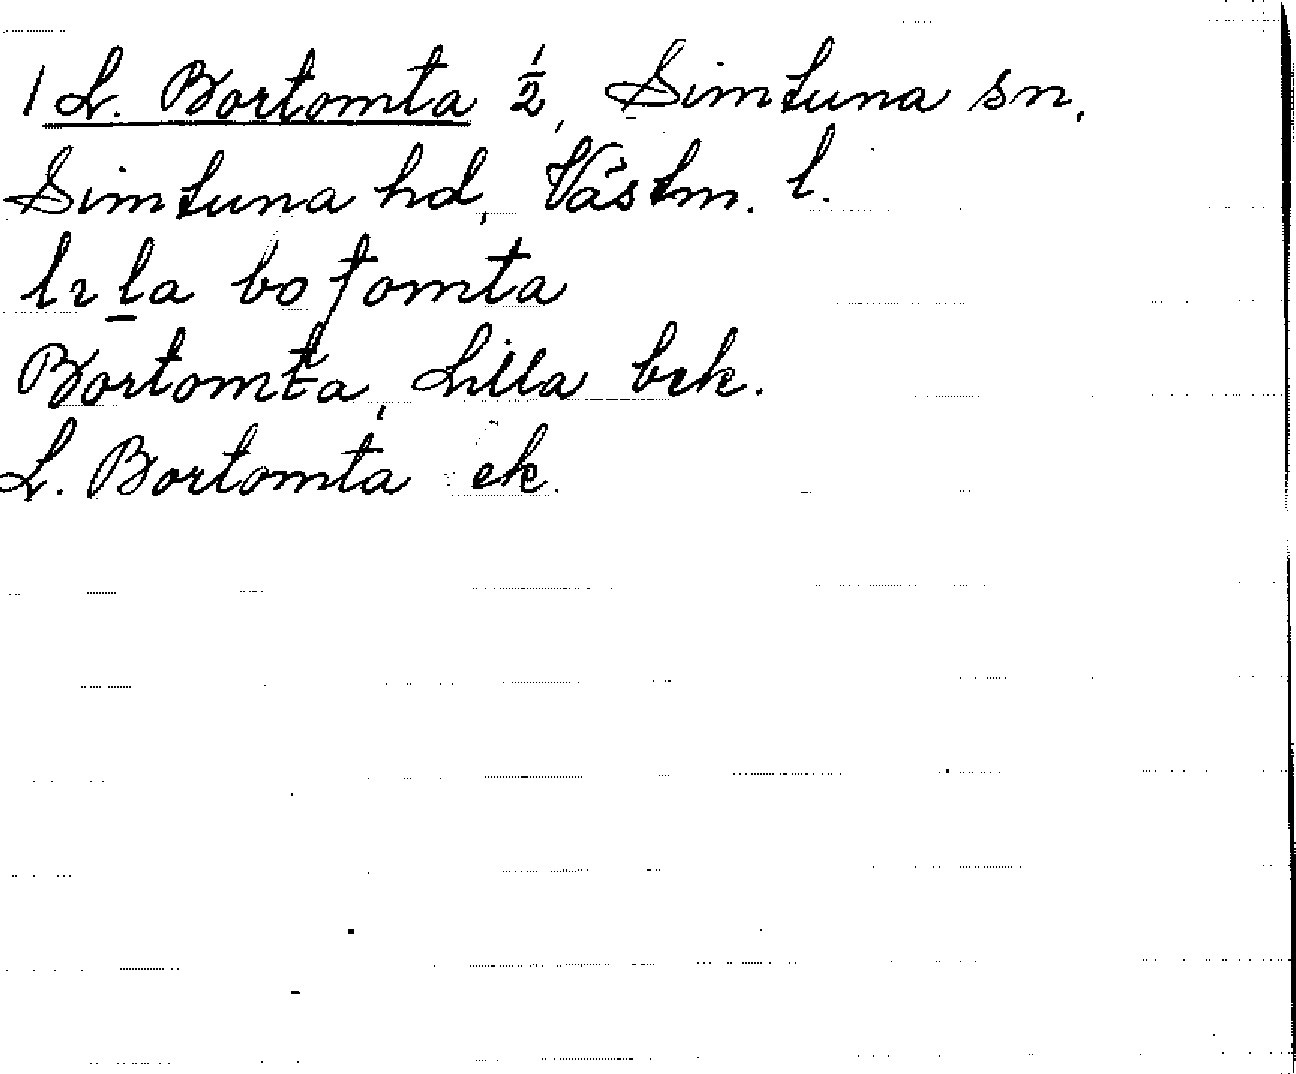 1 L. Bortomta 1/2, Simtuna sn.
Simtuna hd, Västm. l.
boʈomta
Bortomta, Lilla bek.
L. Bortomta ek.